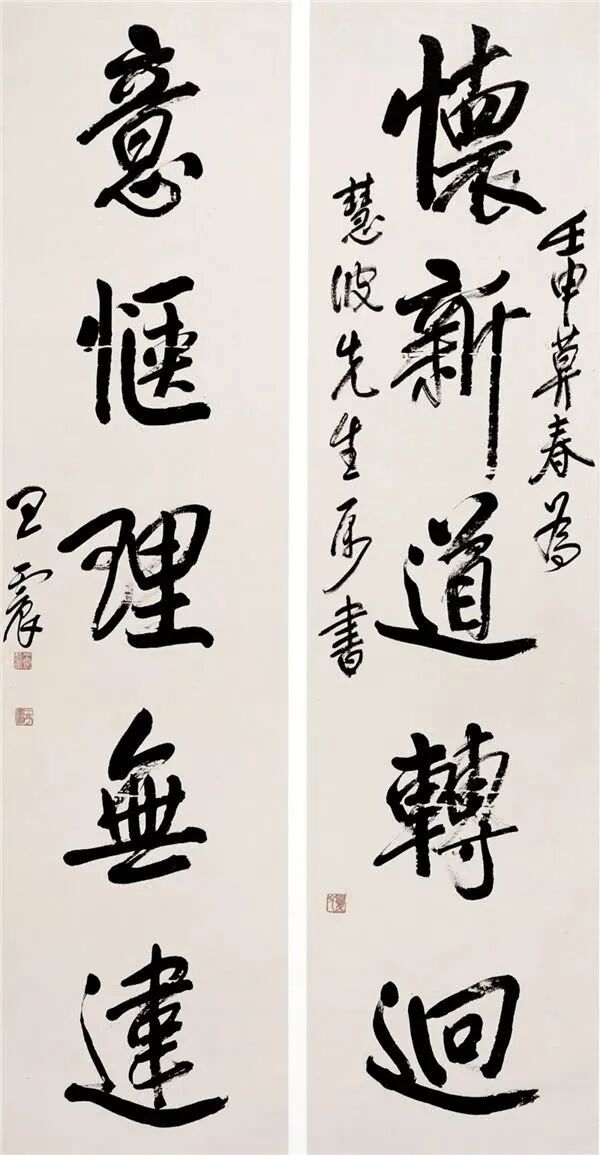 壬申莫春為
懷新道轉迥
慧波先生屬書
意愜理無違
王震